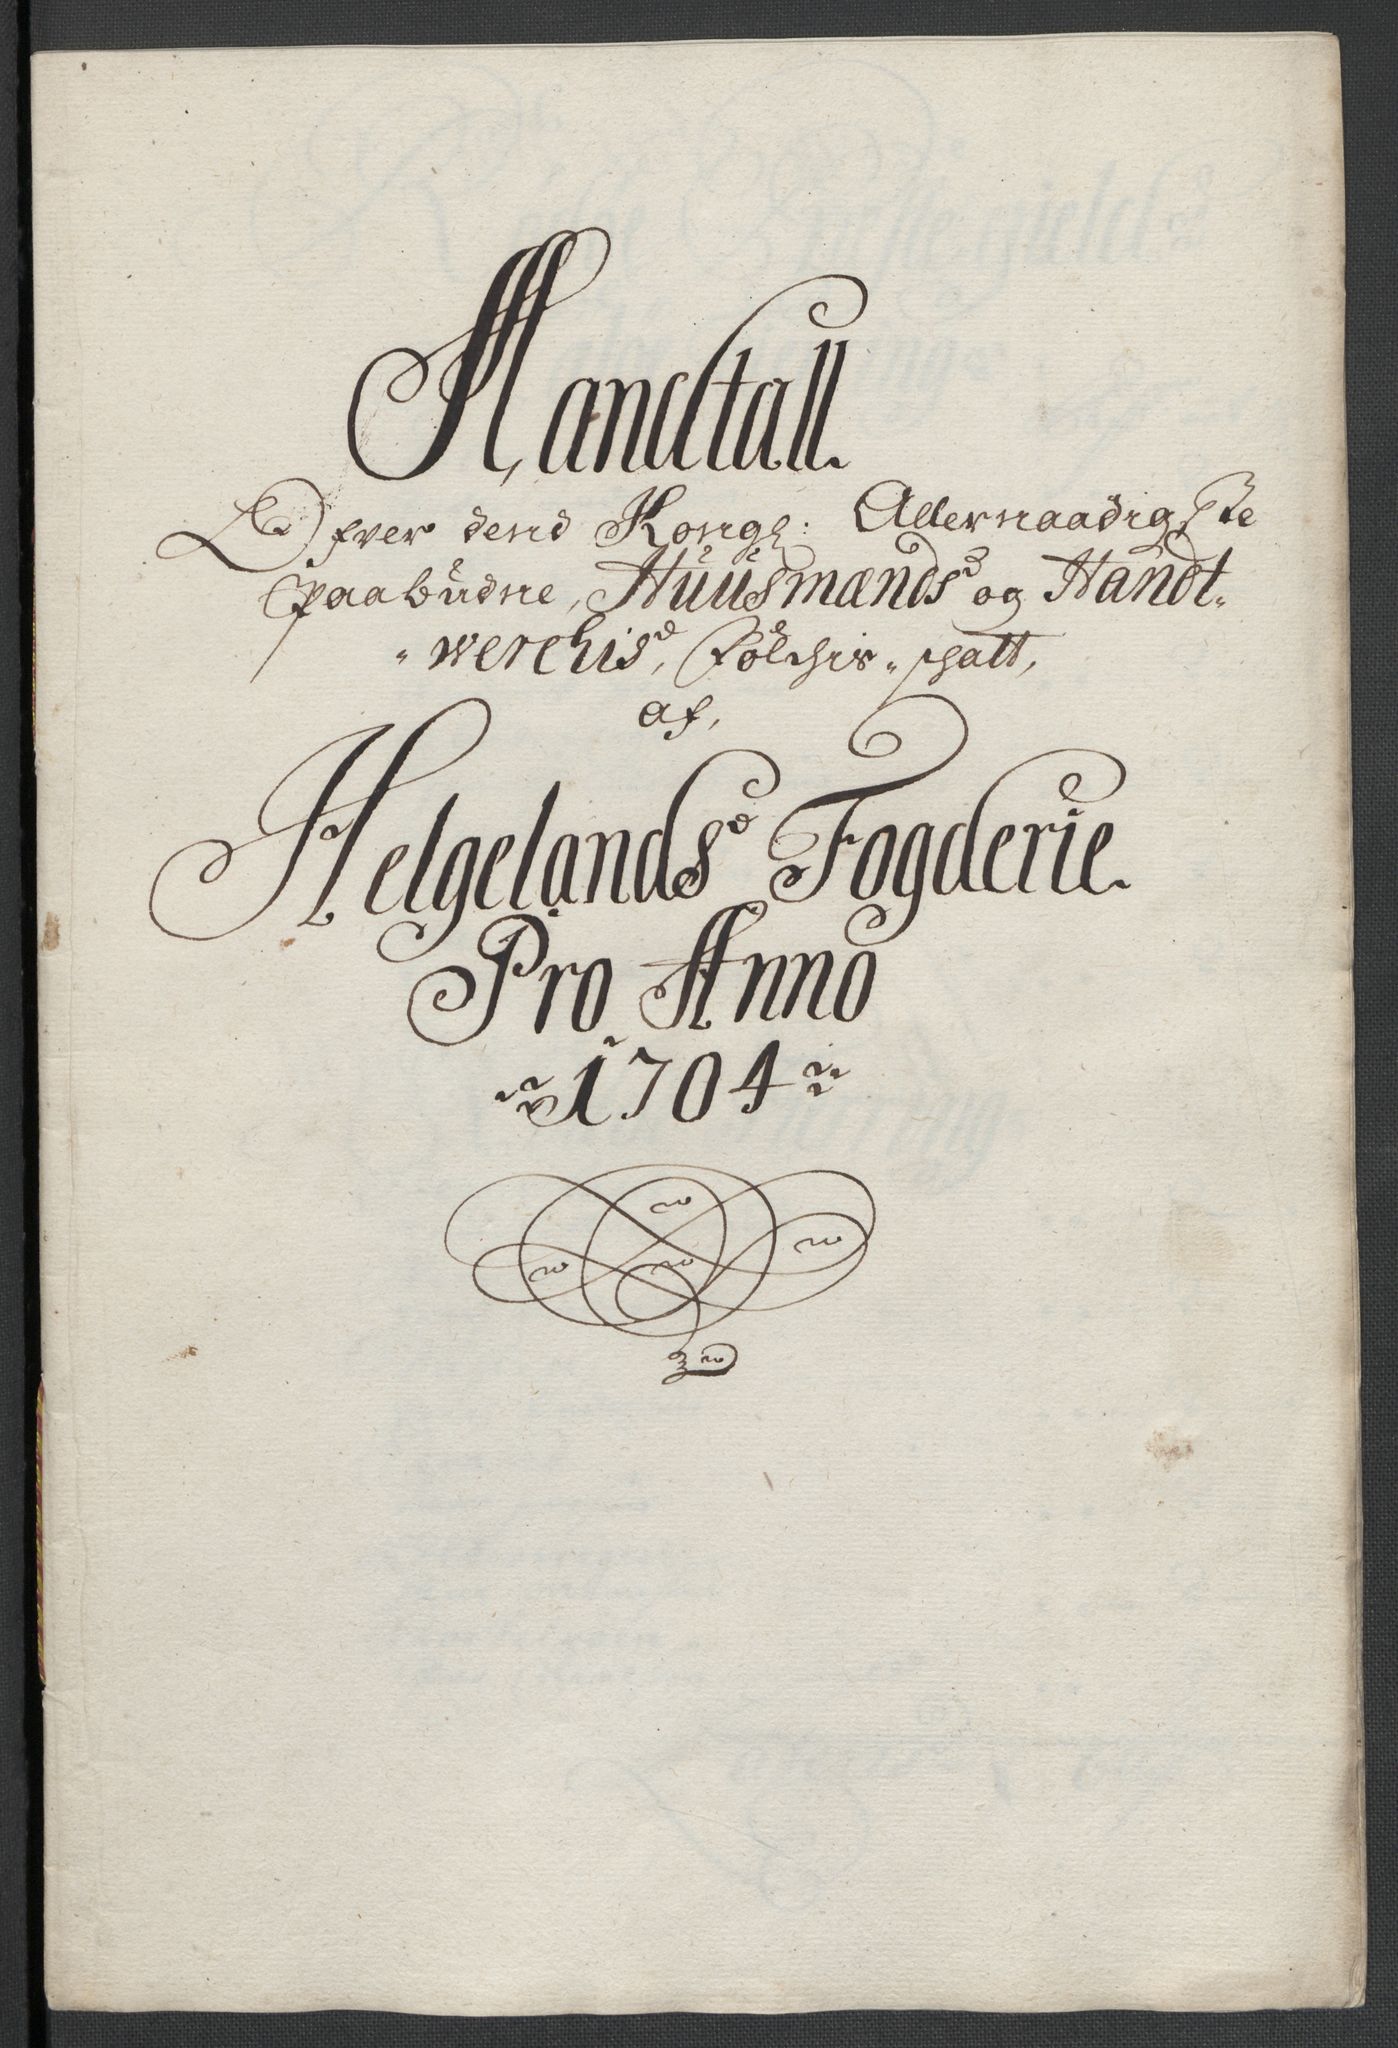 Mandtall.
Ofver dend Kongl: Allernaadigste
paabudne, Huusmænds og Handt„
„werchis, Folchis„ schatt,
af,
Helgelands Fogderie.
Pro Anno
1704